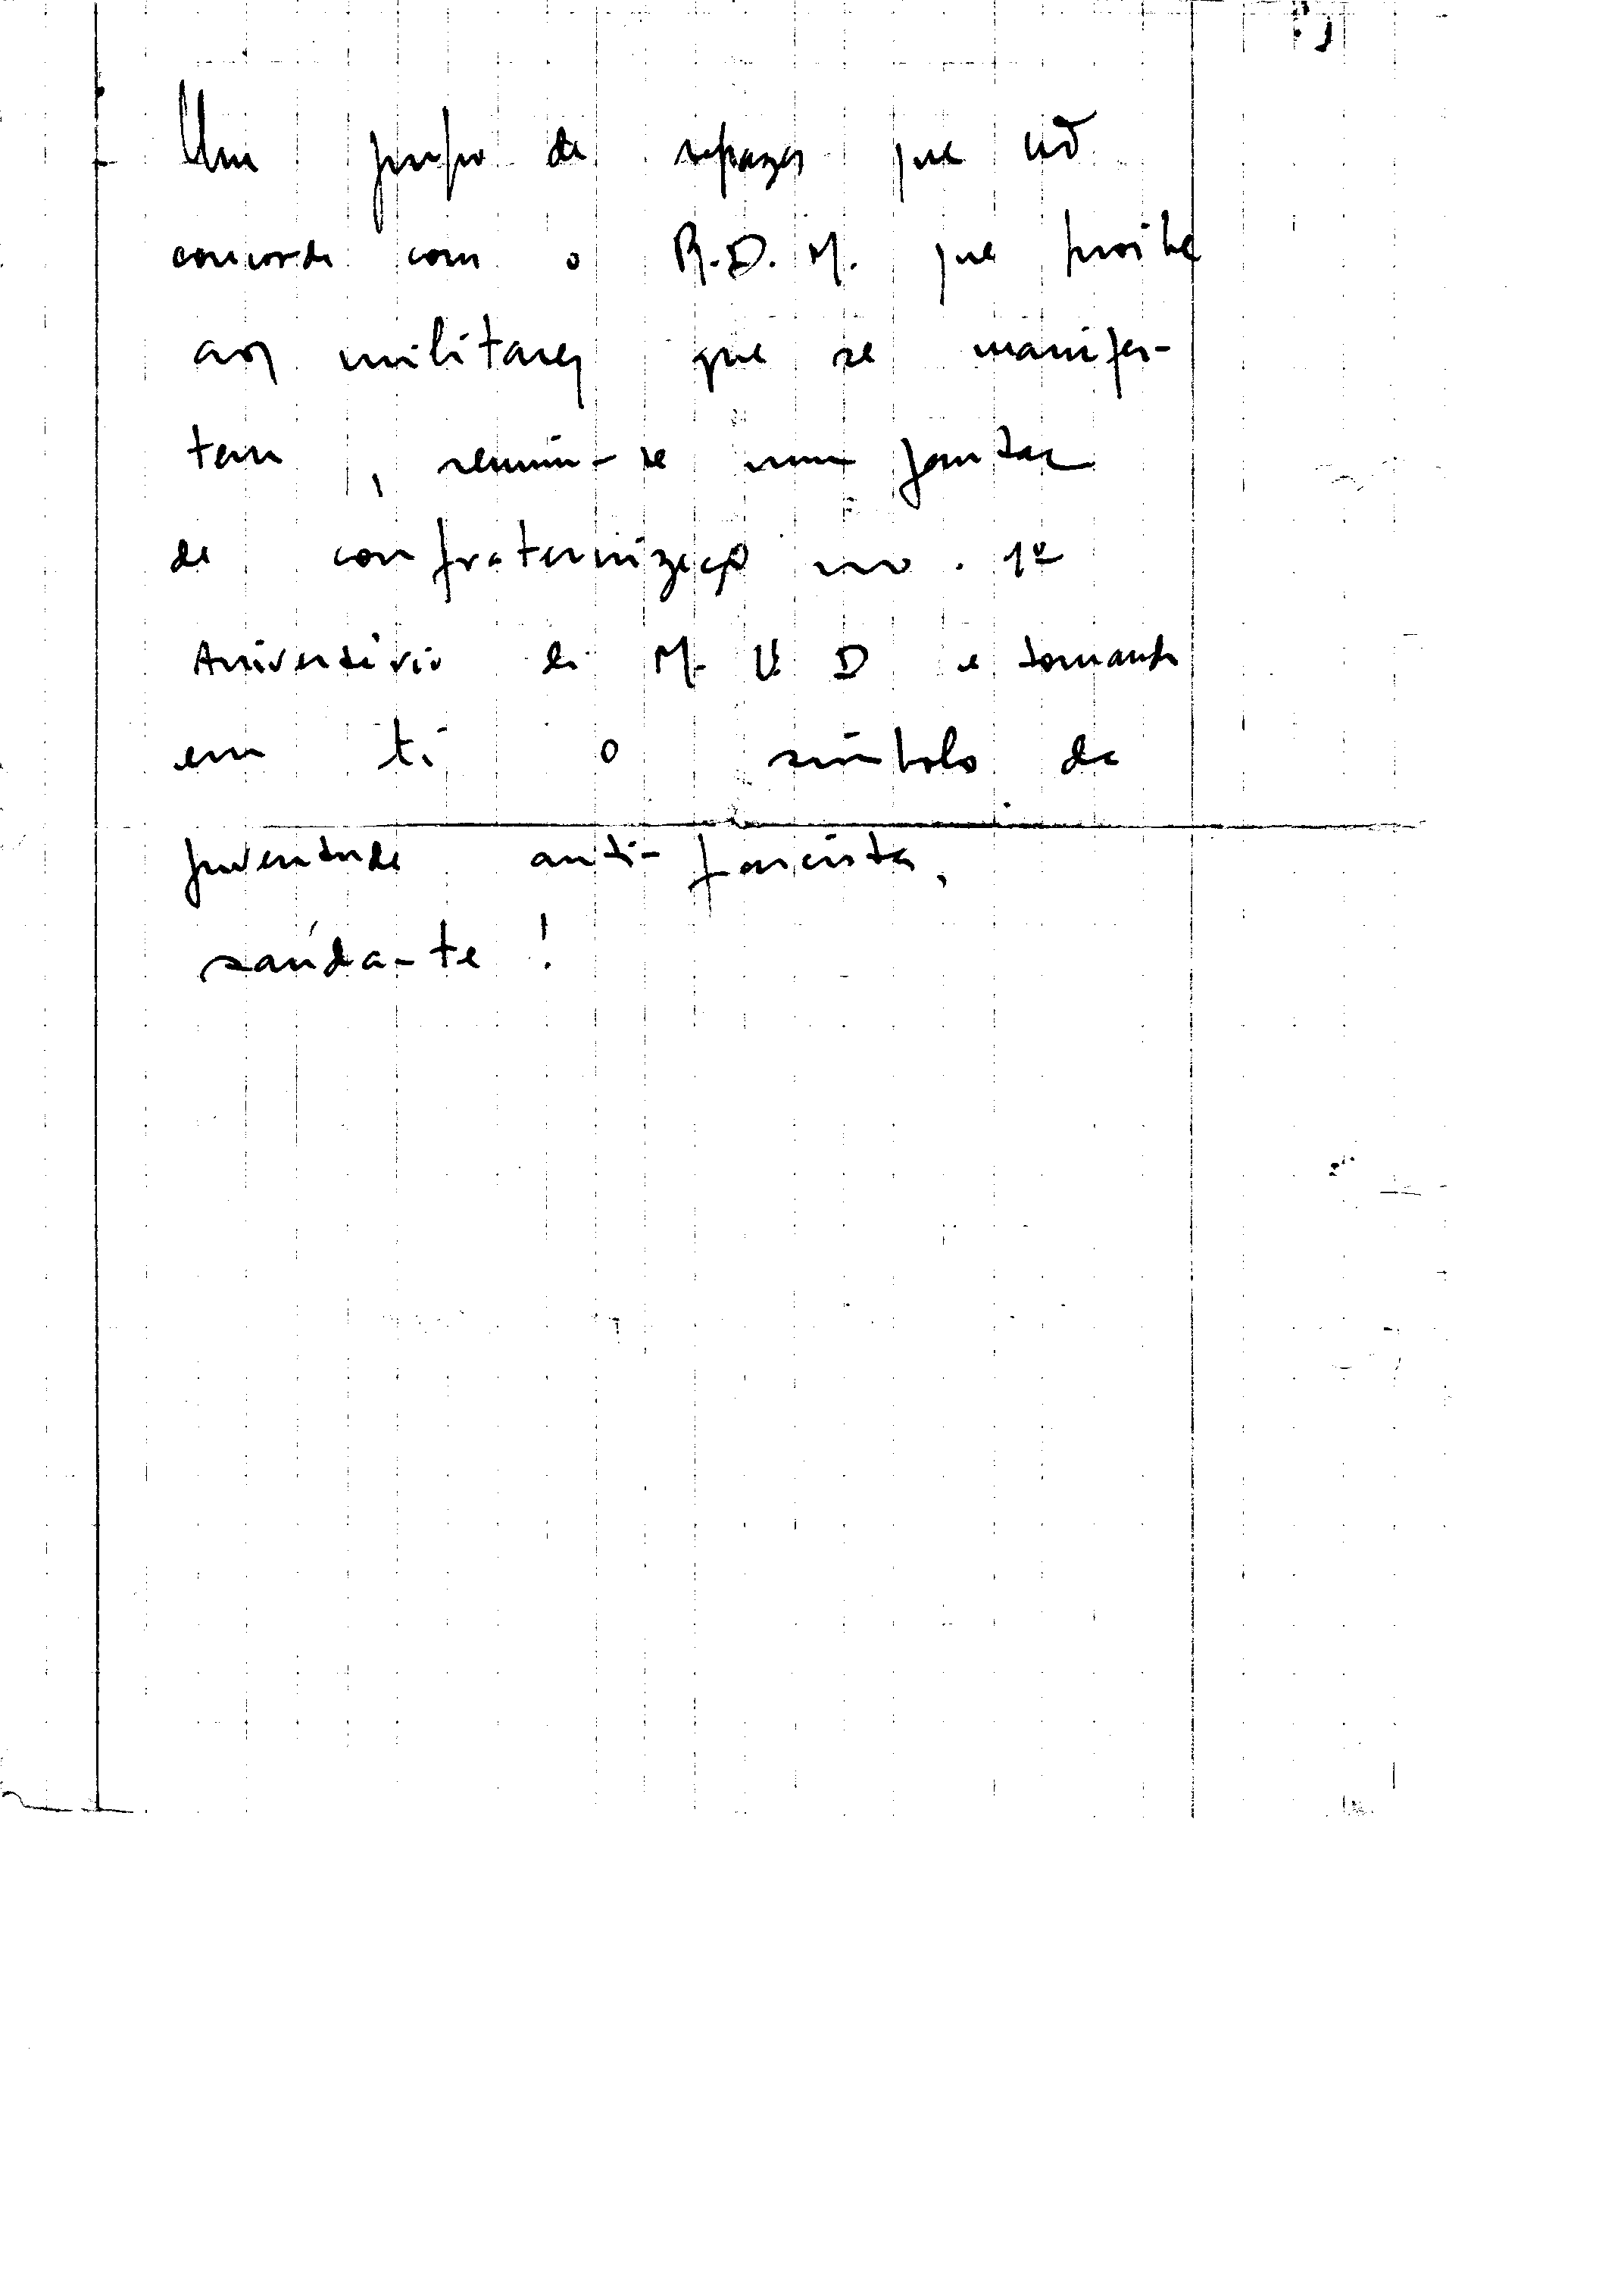 Um grupo de rapazes que não
concorda com o R.D.M. que proibe
aos militares que se manifes-
tem, reuniu-se num jantar
de confraternização no 1º
Aniversário do M. U. D e tomando
em ti o símbolo da
juventude anti-fascista,
saúda-te!